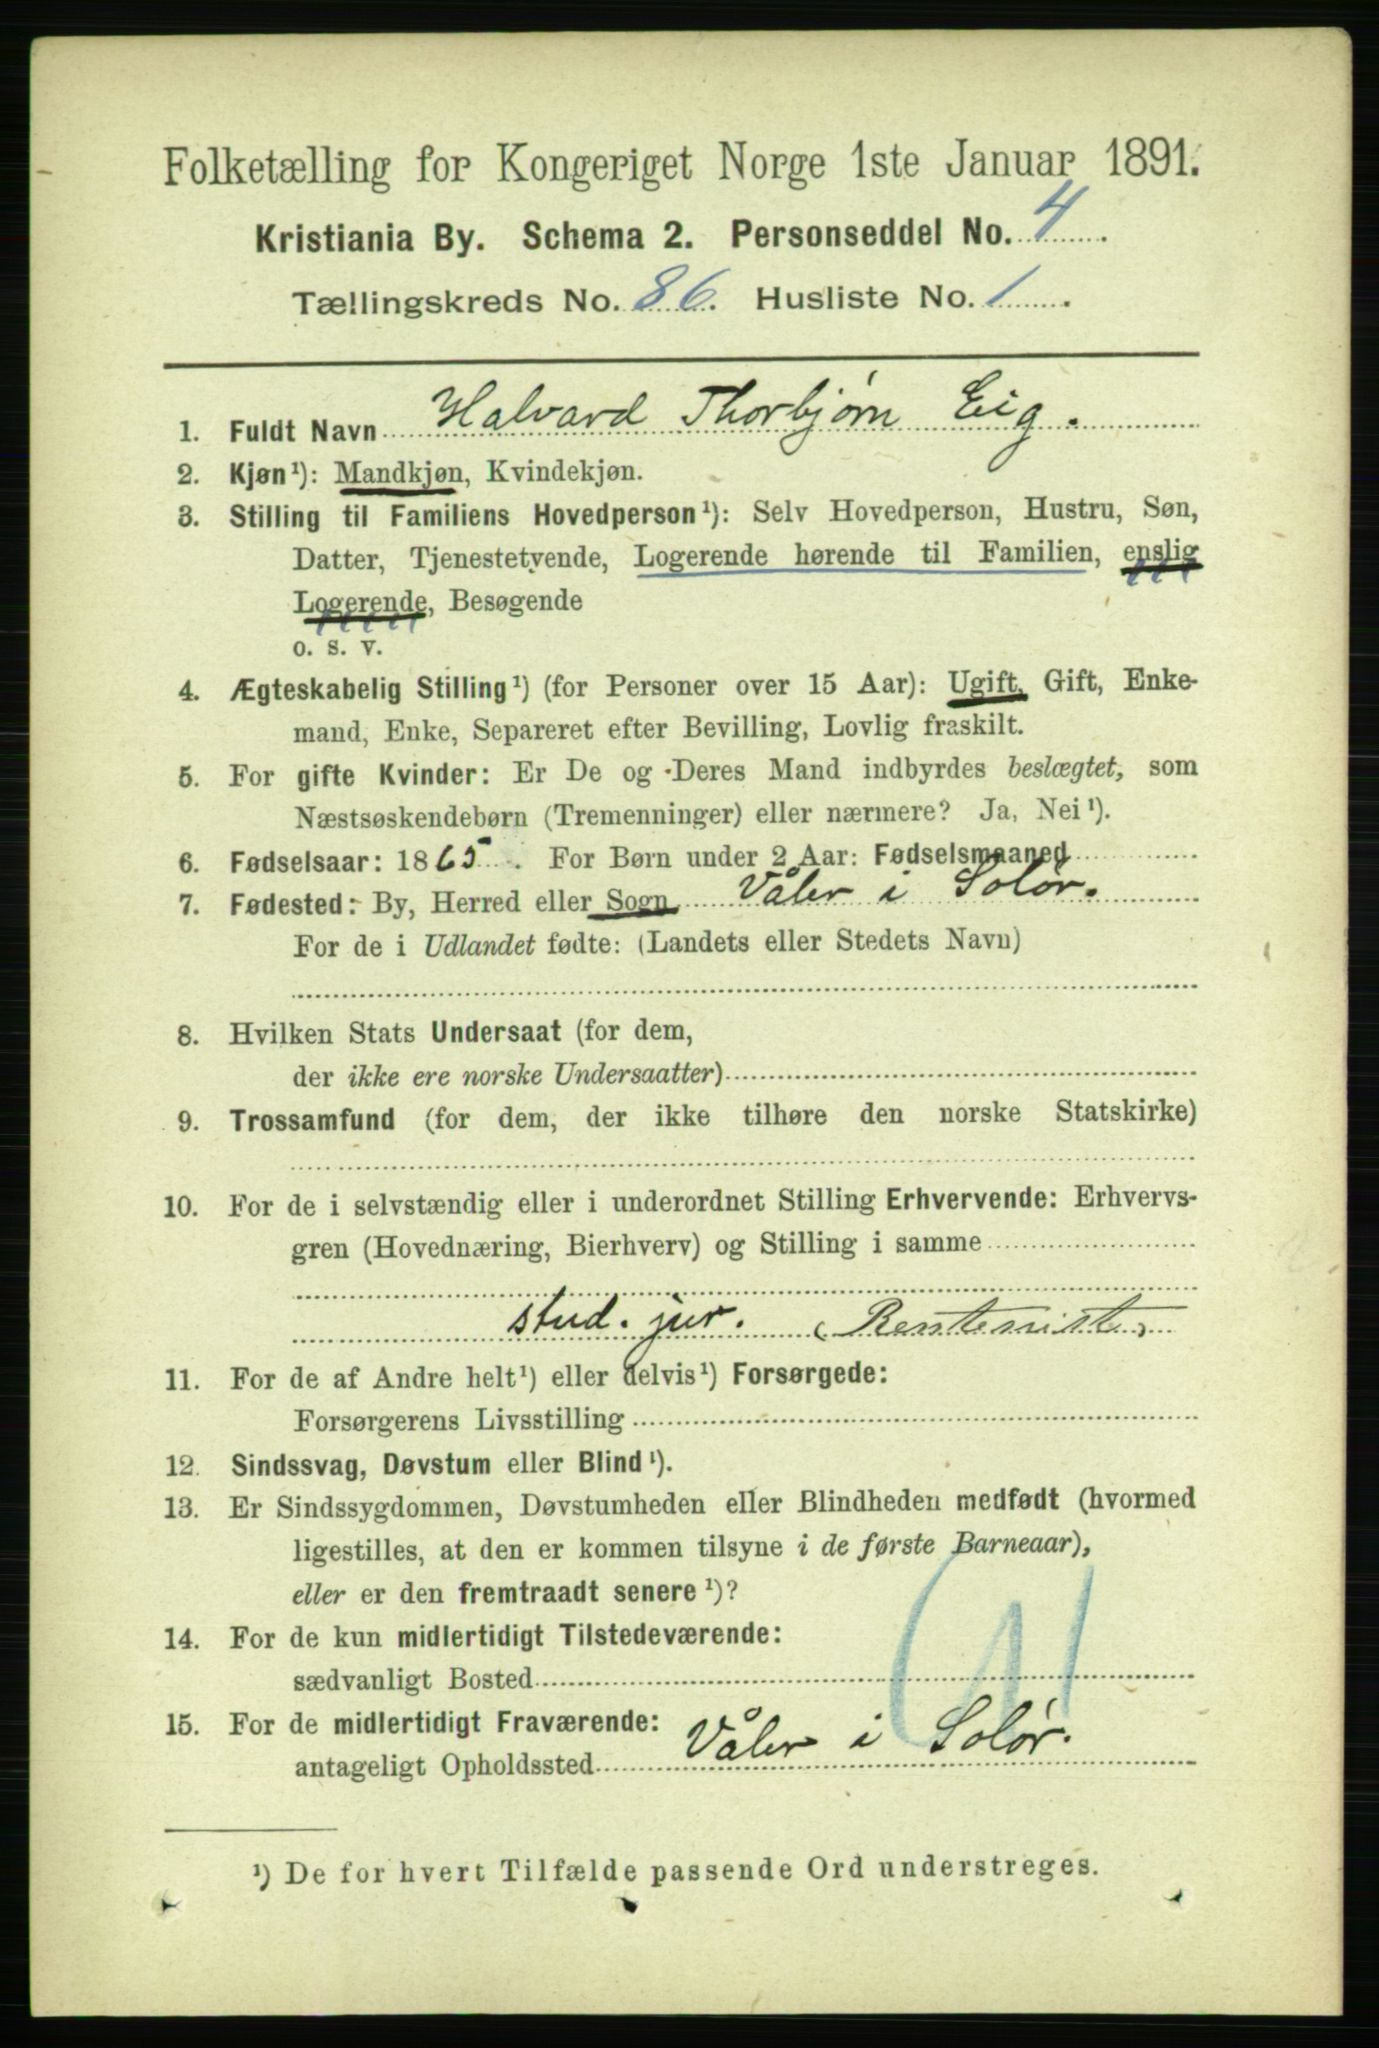 Folketælling for Kongeriget Norge 1ste Januar 1891.
Kristiania By. Schema 2. Personseddel No. 4.
Tællingskreds No. 86. Husliste No. 1.
1. Fuldt Navn Halvard Thorbjørn Eig.
2. Kjøn¹): Mandkjøn, Kvindekjøn.
3. Stilling til Familiens Hovedperson¹): Selv Hovedperson, Hustru, Søn,
Datter, Tjenestetyende, Logerende hørende til Familien, enslig
Logerende, Besøgende
o. s. v.
4. Ægteskabelig Stilling¹) (for Personer over 15 Aar): Ugift, Gift, Enke-
mand, Enke, Separeret efter Bevilling, Lovlig fraskilt.
5. For gifte Kvinder: Er De og Deres Mand indbyrdes beslægtet, som
Næstsøskendebørn (Tremenninger) eller nærmere? Ja, Nei¹).
6. Fødselsaar: 1865. For Børn under 2 Aar: Fødselsmaaned
7. Fødested: By, Herred eller Sogn Våler i Solør.
For de i Udlandet fødte: (Landets eller Stedets Navn)
8. Hvilken Stats Undersaat (for dem,
der ikke ere norske Undersaatter)
9. Trossamfund (for dem, der ikke tilhøre den norske Statskirke)
10. For de i selvstændig eller i underordnet Stilling Erhvervende: Erhvervs-
gren (Hovednæring, Bierhverv) og Stilling i samme
stud. jur. (Rentenist)
11. For de af Andre helt¹) eller delvis¹) Forsørgede:
Forsørgerens Livsstilling
12. Sindssvag, Døvstum eller Blind¹).
13. Er Sindssygdommen, Døvstumheden eller Blindheden medfødt (hvormed
ligestilles, at den er kommen tilsyne i de første Barneaar),
eller er den fremtraadt senere¹)?
14. For de kun midlertidigt Tilstedeværende:
sædvanligt Bosted
15. For de midlertidigt Fraværende:
antageligt Opholdssted Våler i Solør.
¹) De for hvert Tilfælde passende Ord understreges.